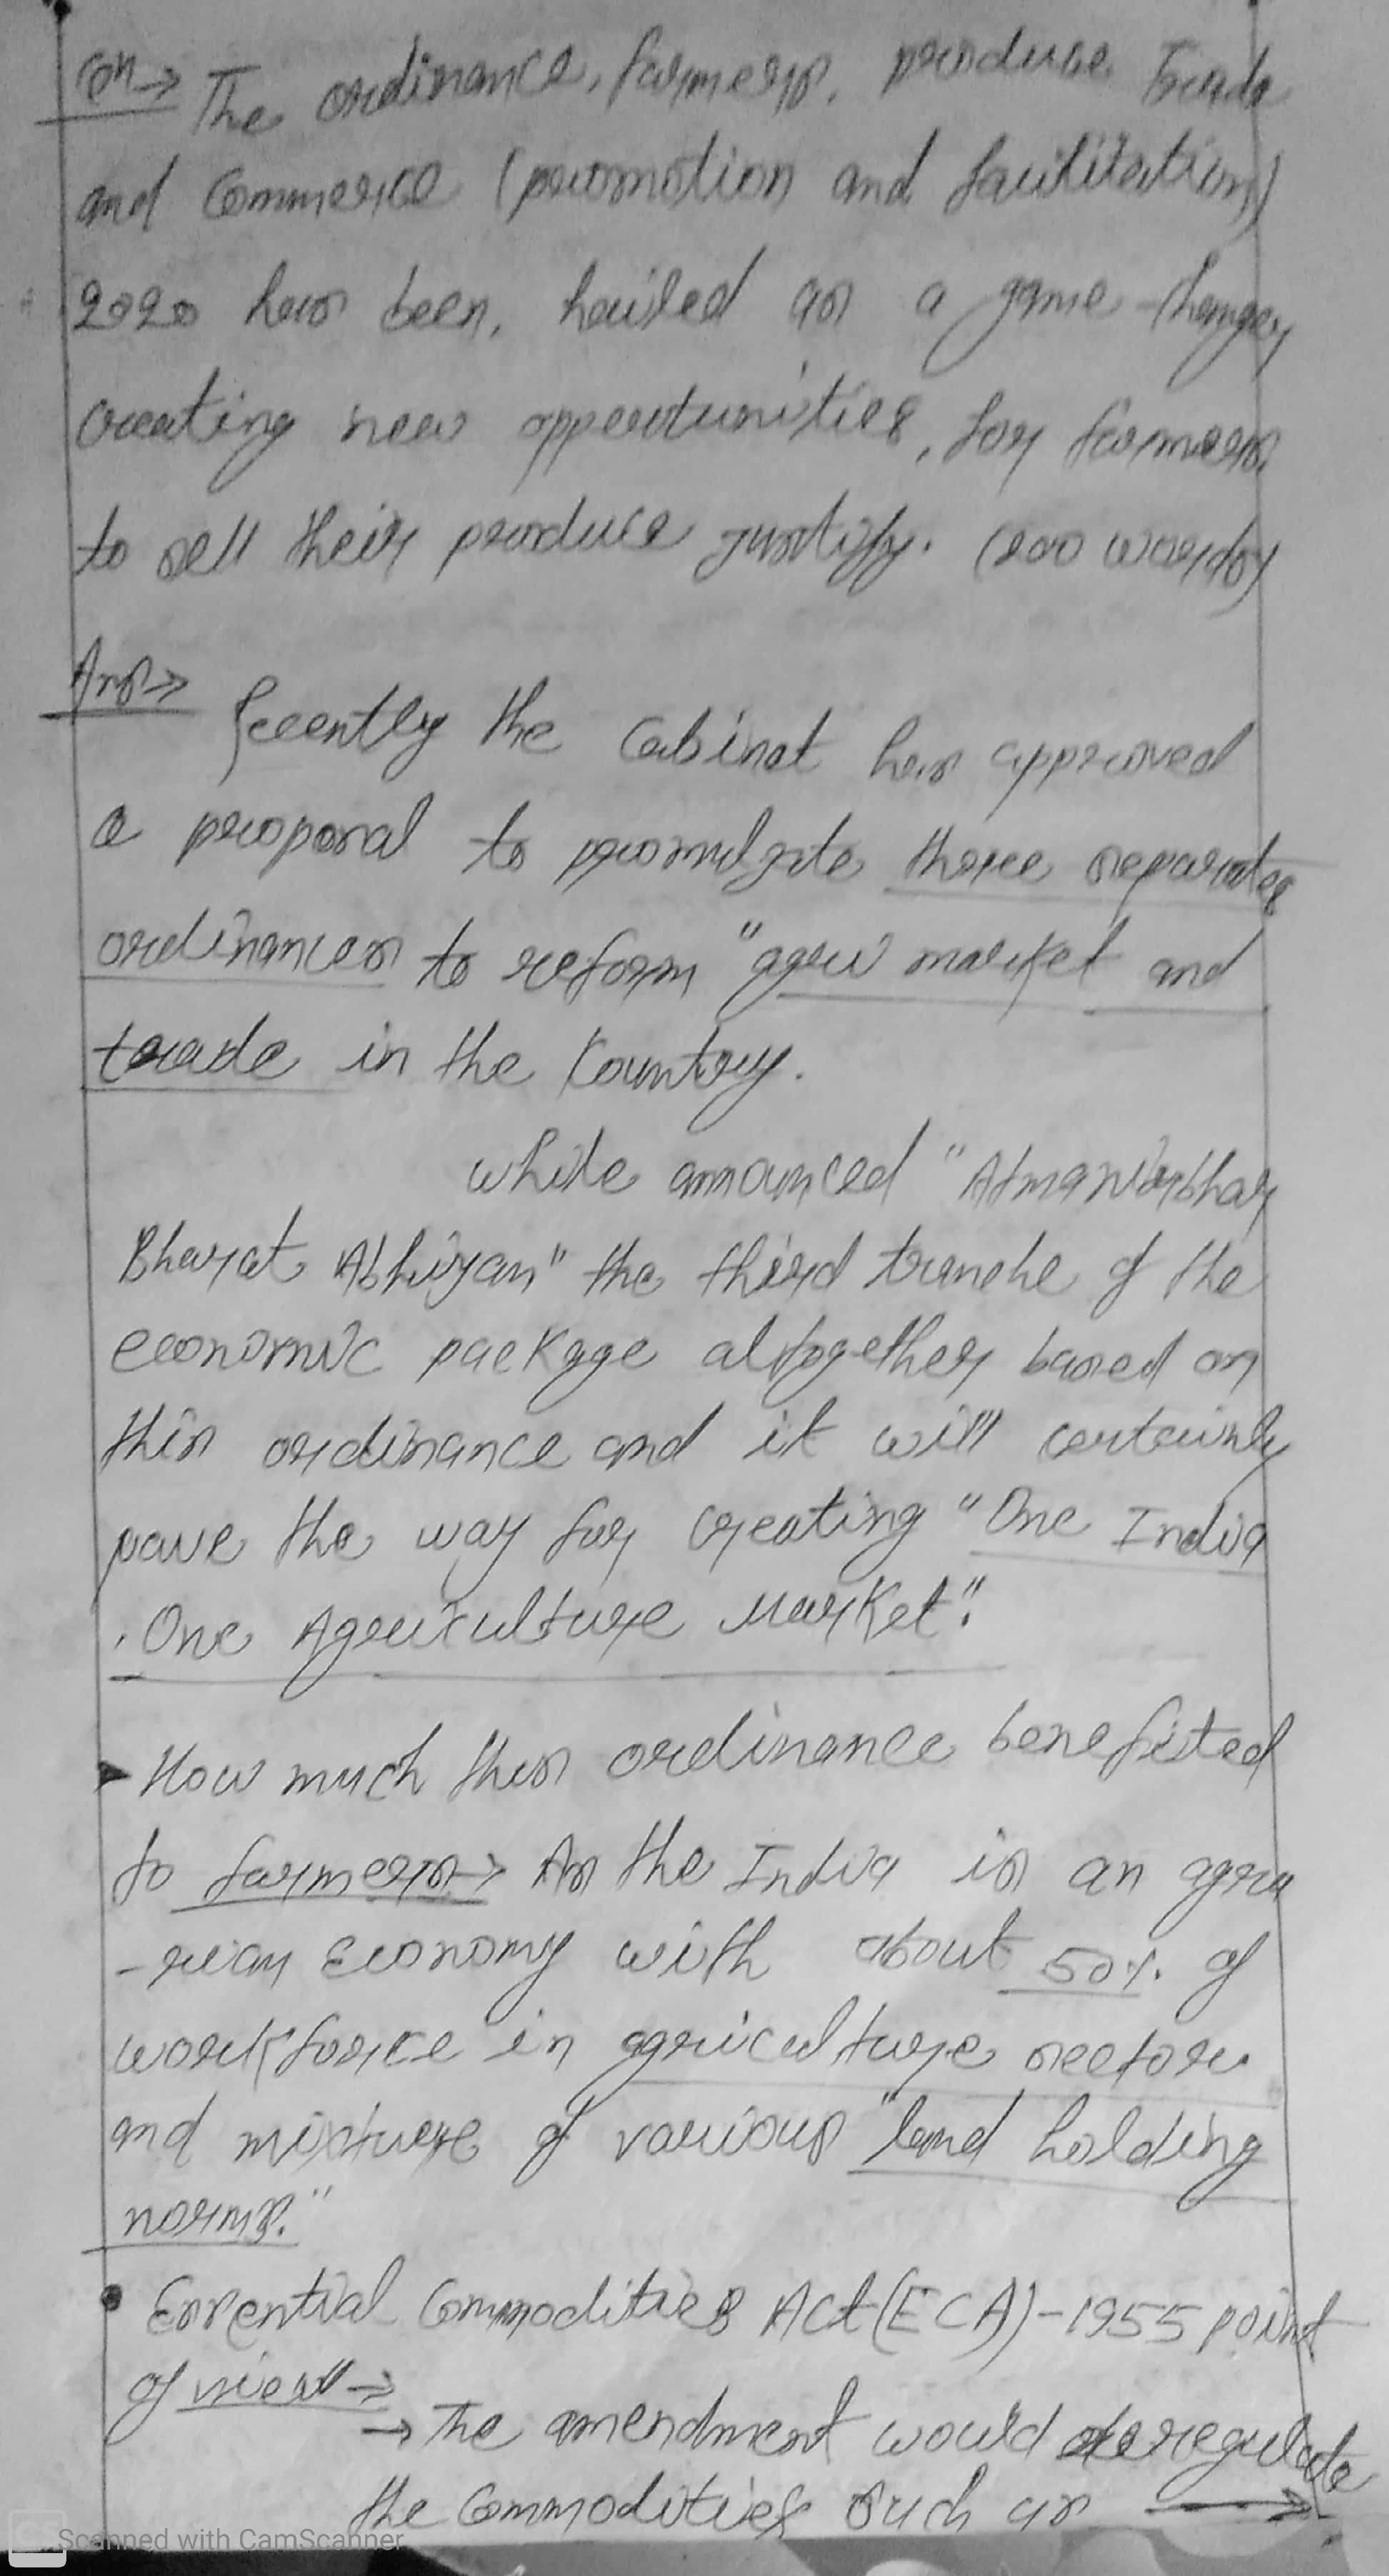 Qn→ The ordinance, farmers, produce Trade
and Commerce (promotion and facilitation)
2020 has been, hailed as a game changer,
creating new opportunities, for farmers.
to sell their produce justify. (200 words)
Ans→ Recently the Cabinet has approved
a proposal to promulgate three separate
ordinances to reform "agri market and
trade in the Country.
while announced "AtmaNirbhar
Bharat Abhiyan" the third tranche of the
economic package altogether based on
this ordinance and it will certainly
pave the way for creating "One India
, One Agriculture Market".
▸ How much this ordinance benefited
to farmers→ As the India is an agra
-rian Economy with about 50% of
workforce in agriculture sector.
and mixture of various "land holding
norms."
• Essential Commodities Act (ECA)-1955 point
of view"→
→ The amendment would deregulate
the Commodities such as →
Scanned with CamScanner